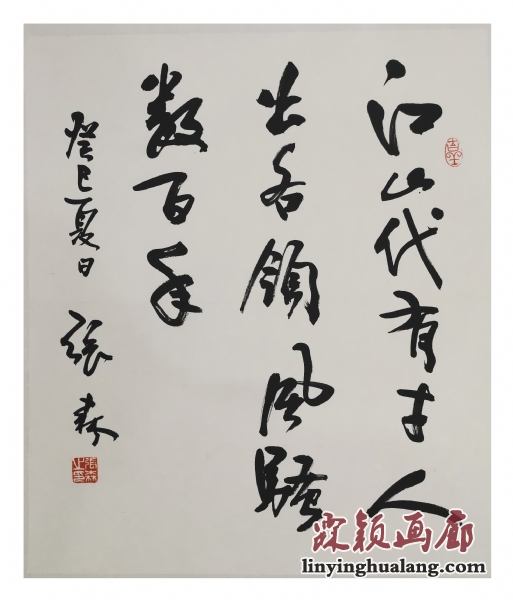 江山代有才人
出各領風騷
數百年
癸巳夏日 張森
張森之印
霖颖画廊
linyinghualang.com